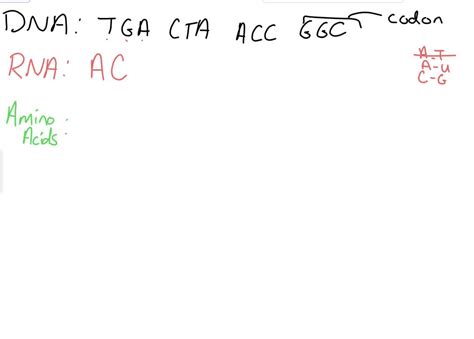 DNA: TGA CTA ACC GGC codon
RNA: AC
A-T
A-U
C-G
Amino
Acids: